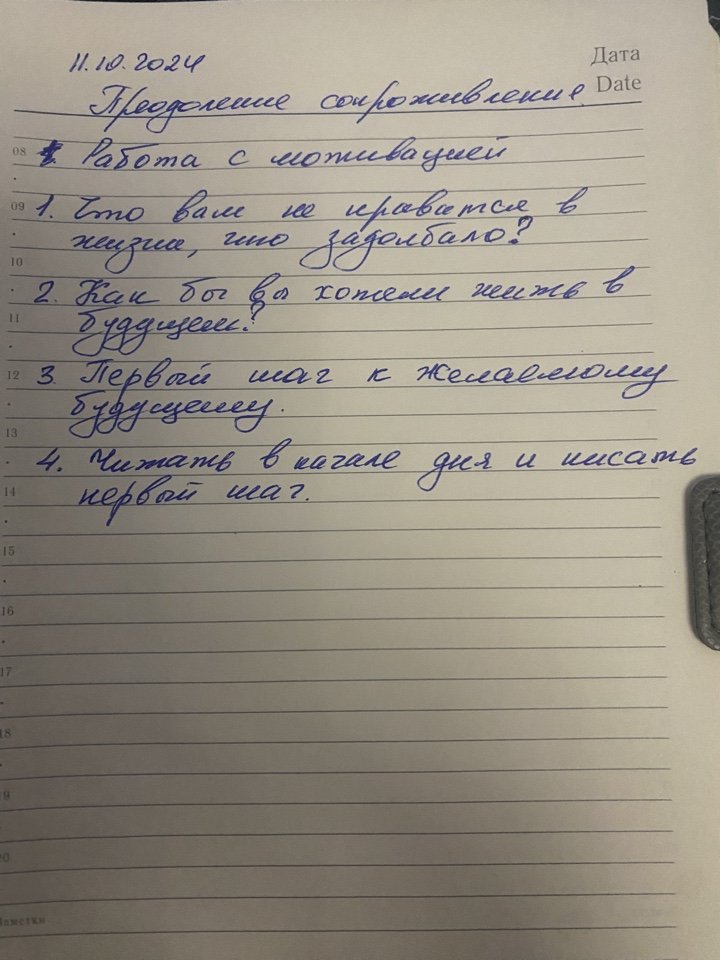 11.10.2024
Дата
Date
Преодоление сопроживление
08
Работа с мотивацией
09
1. Что вам не нравится в
жизни, что задолбало?
10
2. Как бы вы хотели жить в
11
будущем?
12
3. Первый шаг к желаемому
будущему.
13
4. Читать в начале дня и писать
14
первый шаг.
15
16
17
18
19
20
Заметки